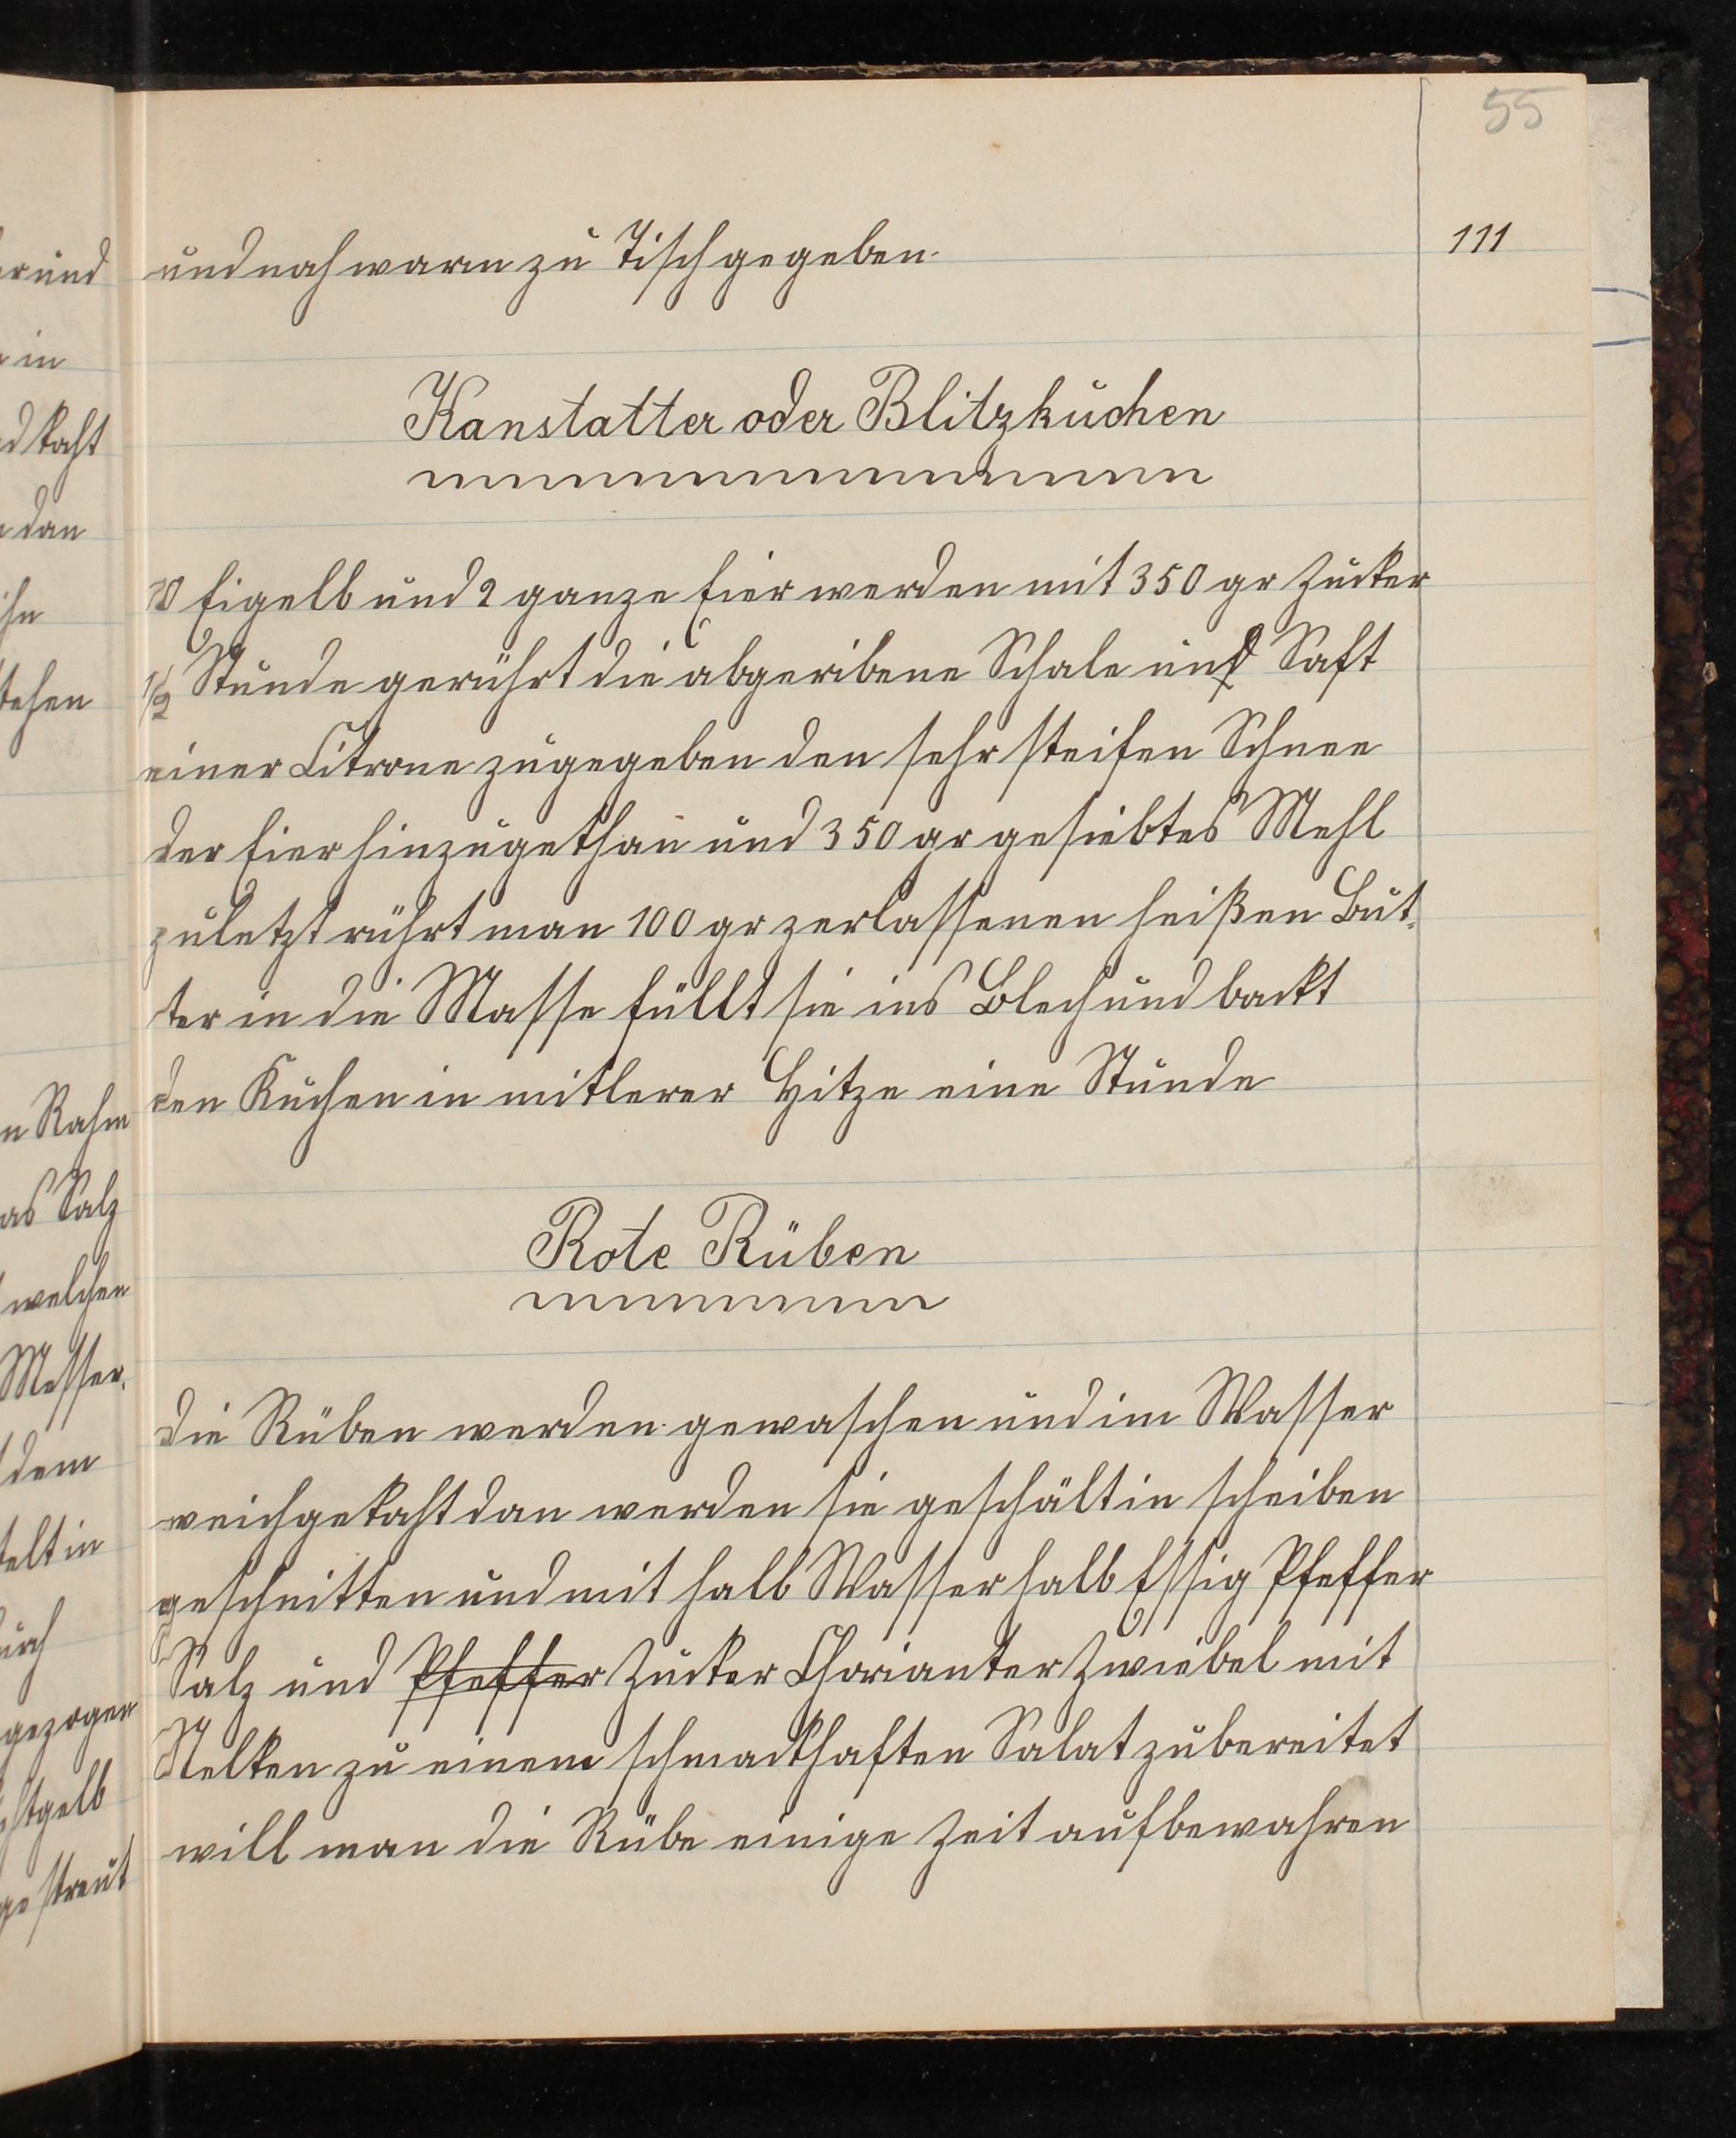 55
111
und noch warm zu Tisch gegeben.
Kanstatter oder Blitzkuchen
10 Eigelb und 2 ganze Eier werden mit 350 gr Zucker
1/2 Stunde gerührt die abgeribene Schale und Saft
einer Citrone zugegeben den sehr steifen Schnee
der Eier hinzugethan und 350 gr gesiebtes Mehl
zuletzt rührt man 100 gr zerlassenen heißen But-
ter in die Masse füllt sie ins Blech und backt
den Kuchen in mitlerer Hitze eine Stunde
Rote Rüben
die Rüben werden gewaschen und im Wasser
weichgekocht dan werden sie geschält in scheiben
geschnitten und mit halb Wasser halb Essig Pfeffer
Salz und Pfeffer Zucker Chorianter Zwiebel mit
Nelken zu einem schmackhaften Salat zubereitet
will man die Rübe einige Zeit aufbewahren